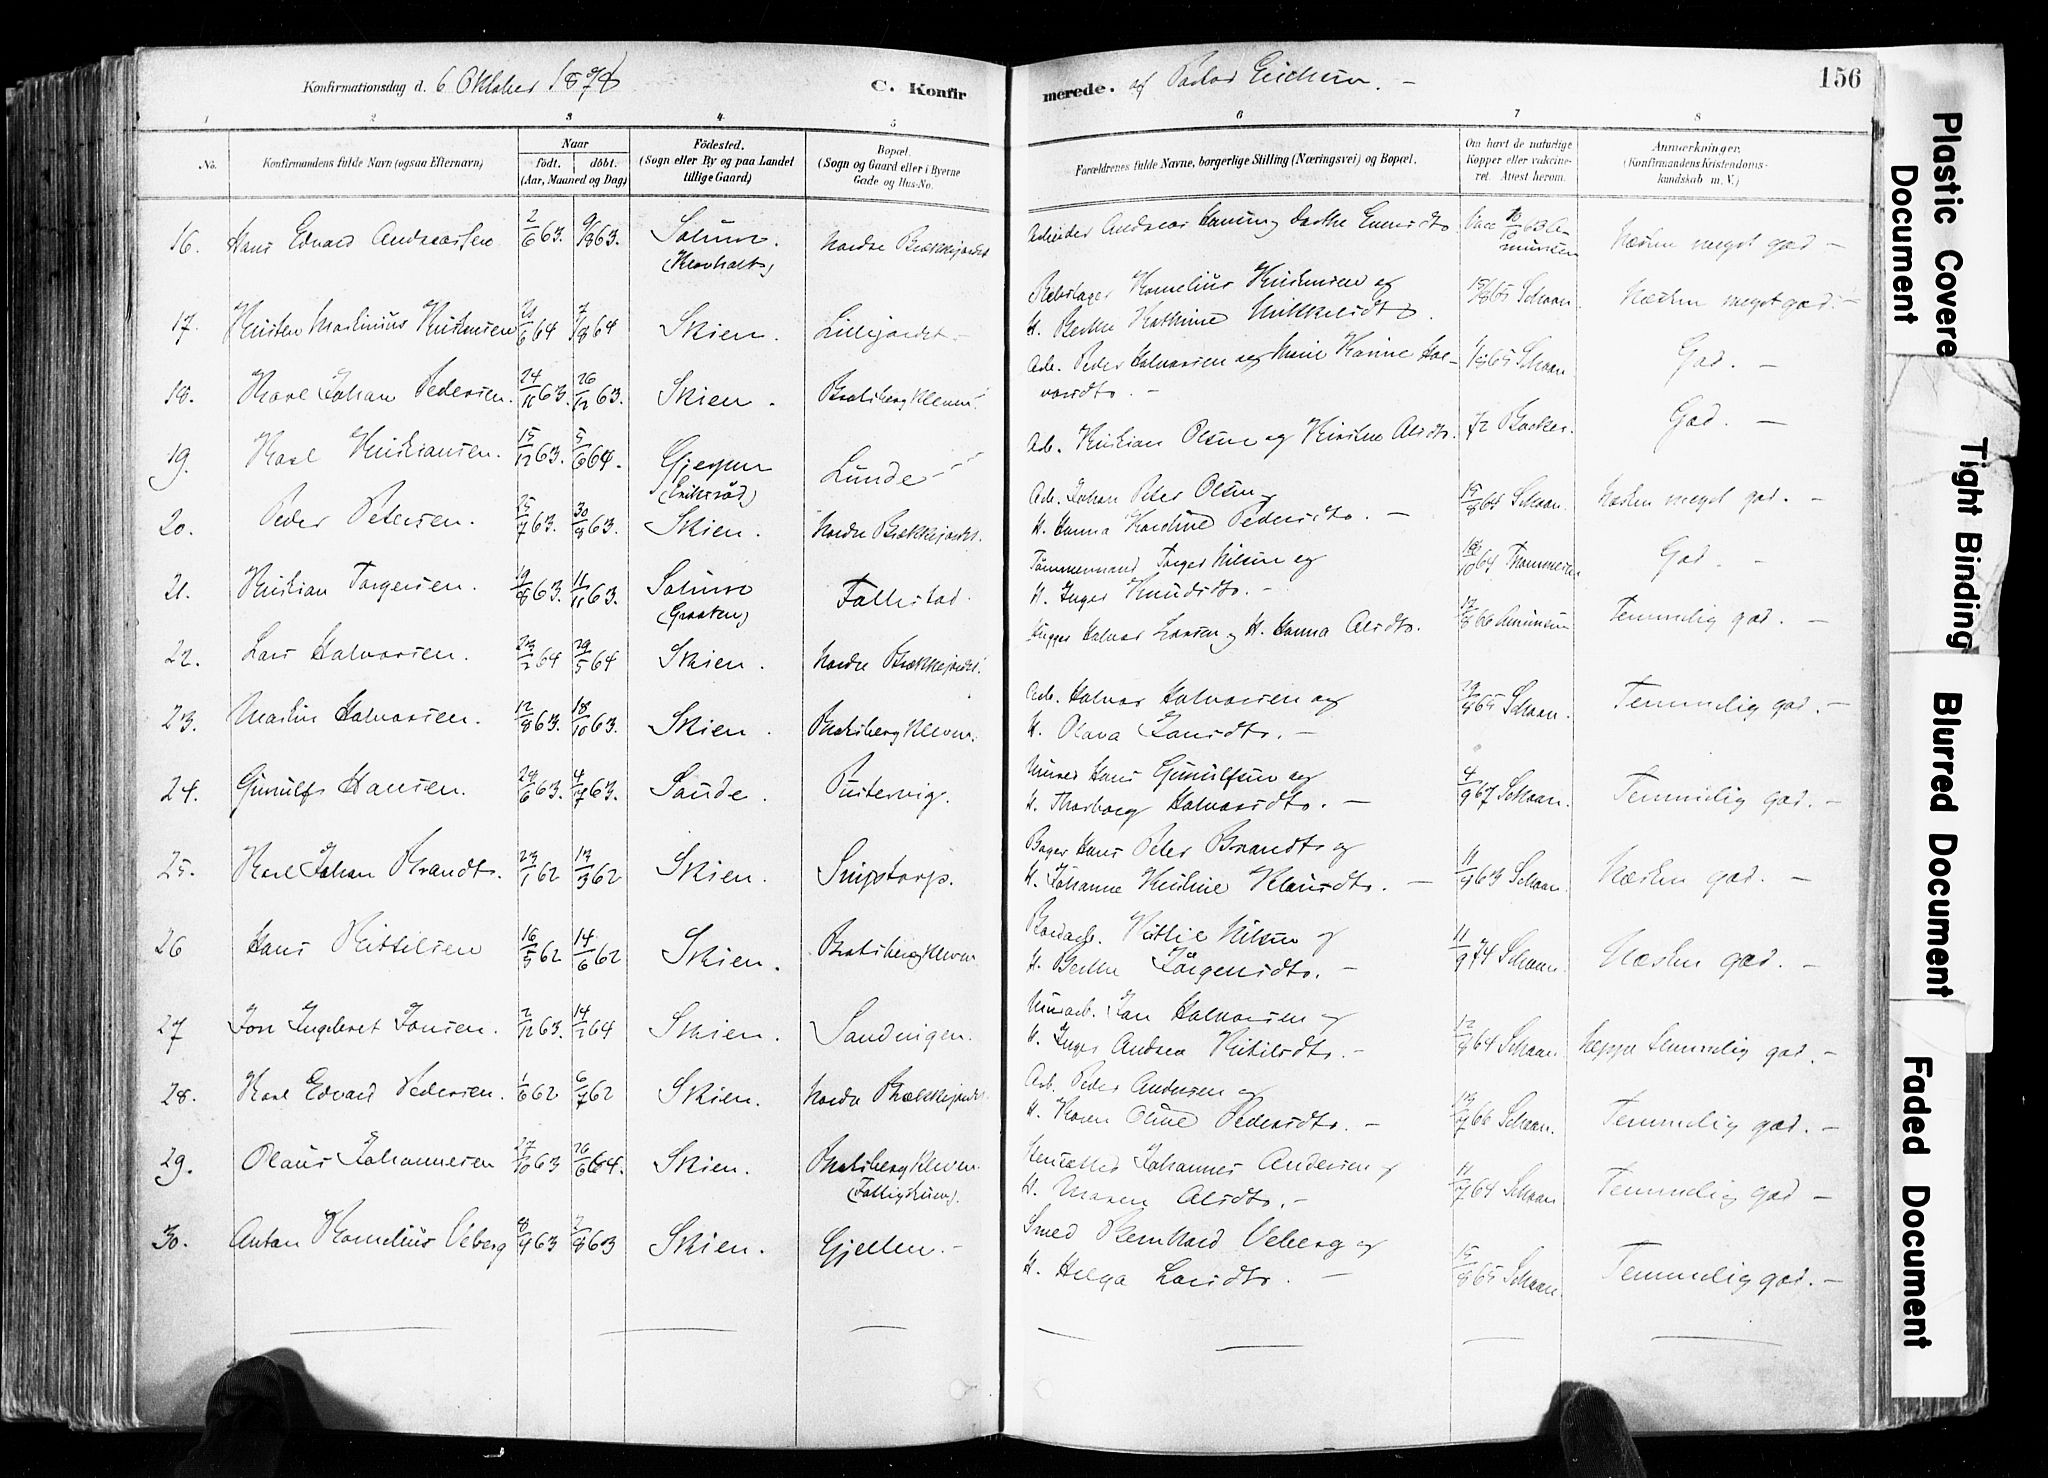 Konfirmationsdag d. 6 Oktober 1878
C. Konfir
merede. af Pastor
156
1 2 3 4 5 6 7 8
No.
Konfirmandens fulde Navn (ogsaa Efternavn)
Naar
født. døbt.
(Aar, Maaned og Dag)
Fødested.
(Sogn eller By og paa Landet
tillige Gaard)
Bopæl.
(Sogn og Gaard eller i Byerne
Gade og Hus-No.
Forældrenes fulde Navne, borgerlige Stilling (Næringsvei) og Bopæl.
Om havt de naturlige
Kopper eller vakcine-
ret. Attest herom.
Anmærkninger,
(Konfirmandens Kristendoms-
kundskab m. V.)
16. Hans Edvard Andreassen 2/6 63. 9/8 63. Solum. Nordre Brækkejordet
(Klovholt)
Arbeider Andreas
Næsten meget god –
17. Kristen Martinius Kristensen 64 7/8 64 Skien. Lillejordet –
Rebslager Kornelius Kristensen og
H. Berthe Kathrine Mikkelsdtr.
15/8 65 Schaan. Næsten meget god. –
18. Karl Johan Pedersen. 24/11 63. 26/12 63. Skien. Bratsbergkleven.
Arb. Peder Halvorsen og Marie Karine Hal-
vorsdtr. –
65 Schaan. God. –
19. Karl Kristiansen. 15/12 63. 5/6 64. Gjerpen Lunde
(Eriksrød)
Arb. Kristian Olsen og Kirsten Olsdtr. 72 Backer. God. –
20. Peder Petersen. 25/7 63. 30/8 63. Skien. Nordre Brækkejordet.
Arb. Johan Peter Olsen
H. Hanna Karoline Pedersdtr. –
15/8 64 Schaan. Næsten meget god. –
21. Kristian Torgersen. 19/8 63. 11/11 63. Solum Follestad.
(Graaten)
Tømmermand Torger Nilsen og
H. Inger Knudsdtr. –
God. –
22. Lars Halvorsen. 23/2 64 29/5 64 Skien. Nordre Brækkejordet.
Halvor Larsen og H. Hanna Olsdtr. 66 Temmelig god. –
23. Martin Halvorsen. 12/8 63. 18/10 63. Skien. Bratsbergkleven.
Arb. Halvor Halvorsen og
H. Olava Jonsdtr. –
65 Schaan. Temmelig god. –
24. Gunulf Hansen. 28/6 63. 4/7 63. Saude. Bustervig.
Murer Hans Gunulfsen og
H. Thorborg Halvorsdtr. –
4/9 67 Schaan. Temmelig god. –
25. Karl Johan Brandt. 23/1 62 13/3 62 Skien. Sniptorp.
Bager Hans Peter Brandt og
H. Johanne Kirstine Klausdtr. –
11/9 63 Schaan. Næsten god. –
26 Hans Kittilsen 16/5 62 14/6 62 Skien. Bratsbergkleven
Bordarb. Kittil Nilsen og
H. Berthe Jørgensdtr. –
11/9 74 Schaan. Næsten god. –
27 Jon Ingebret Jonsen. 2/12 63. 14/2 64 Skien. Sandvigen.
Murarb. Jon Halvorsen og
H. Inger Andrea Kittilsdtr. –
12/9 64 Schaan neppe temmelig god. –
28. Karl Edvard Pedersen. 1/6 62 6/7 62 Skien. Nordre Brækkejordet.
Arb. Peder Andersen og
H. Karen Oline Pedersdtr. –
66 Schaan. Temmelig god. –
29. Olaus Johannesen 27/10 63 26/6 64. Skien. Bratsbergkleven.
Johannes Andersen og
H. Maren Olsdtr. –
64 Schaan Temmelig god –
30. Anton Kornelius Veberg 63 2/8 63 Skien. Gjellen. –
Smed Bernhard Veberg og
H. Helga Larsdtr. –
15/8 65 Schaan. Temmelig god. –
Plastic Covere
Document
Tight Binding
Blurred Document
Faded Document